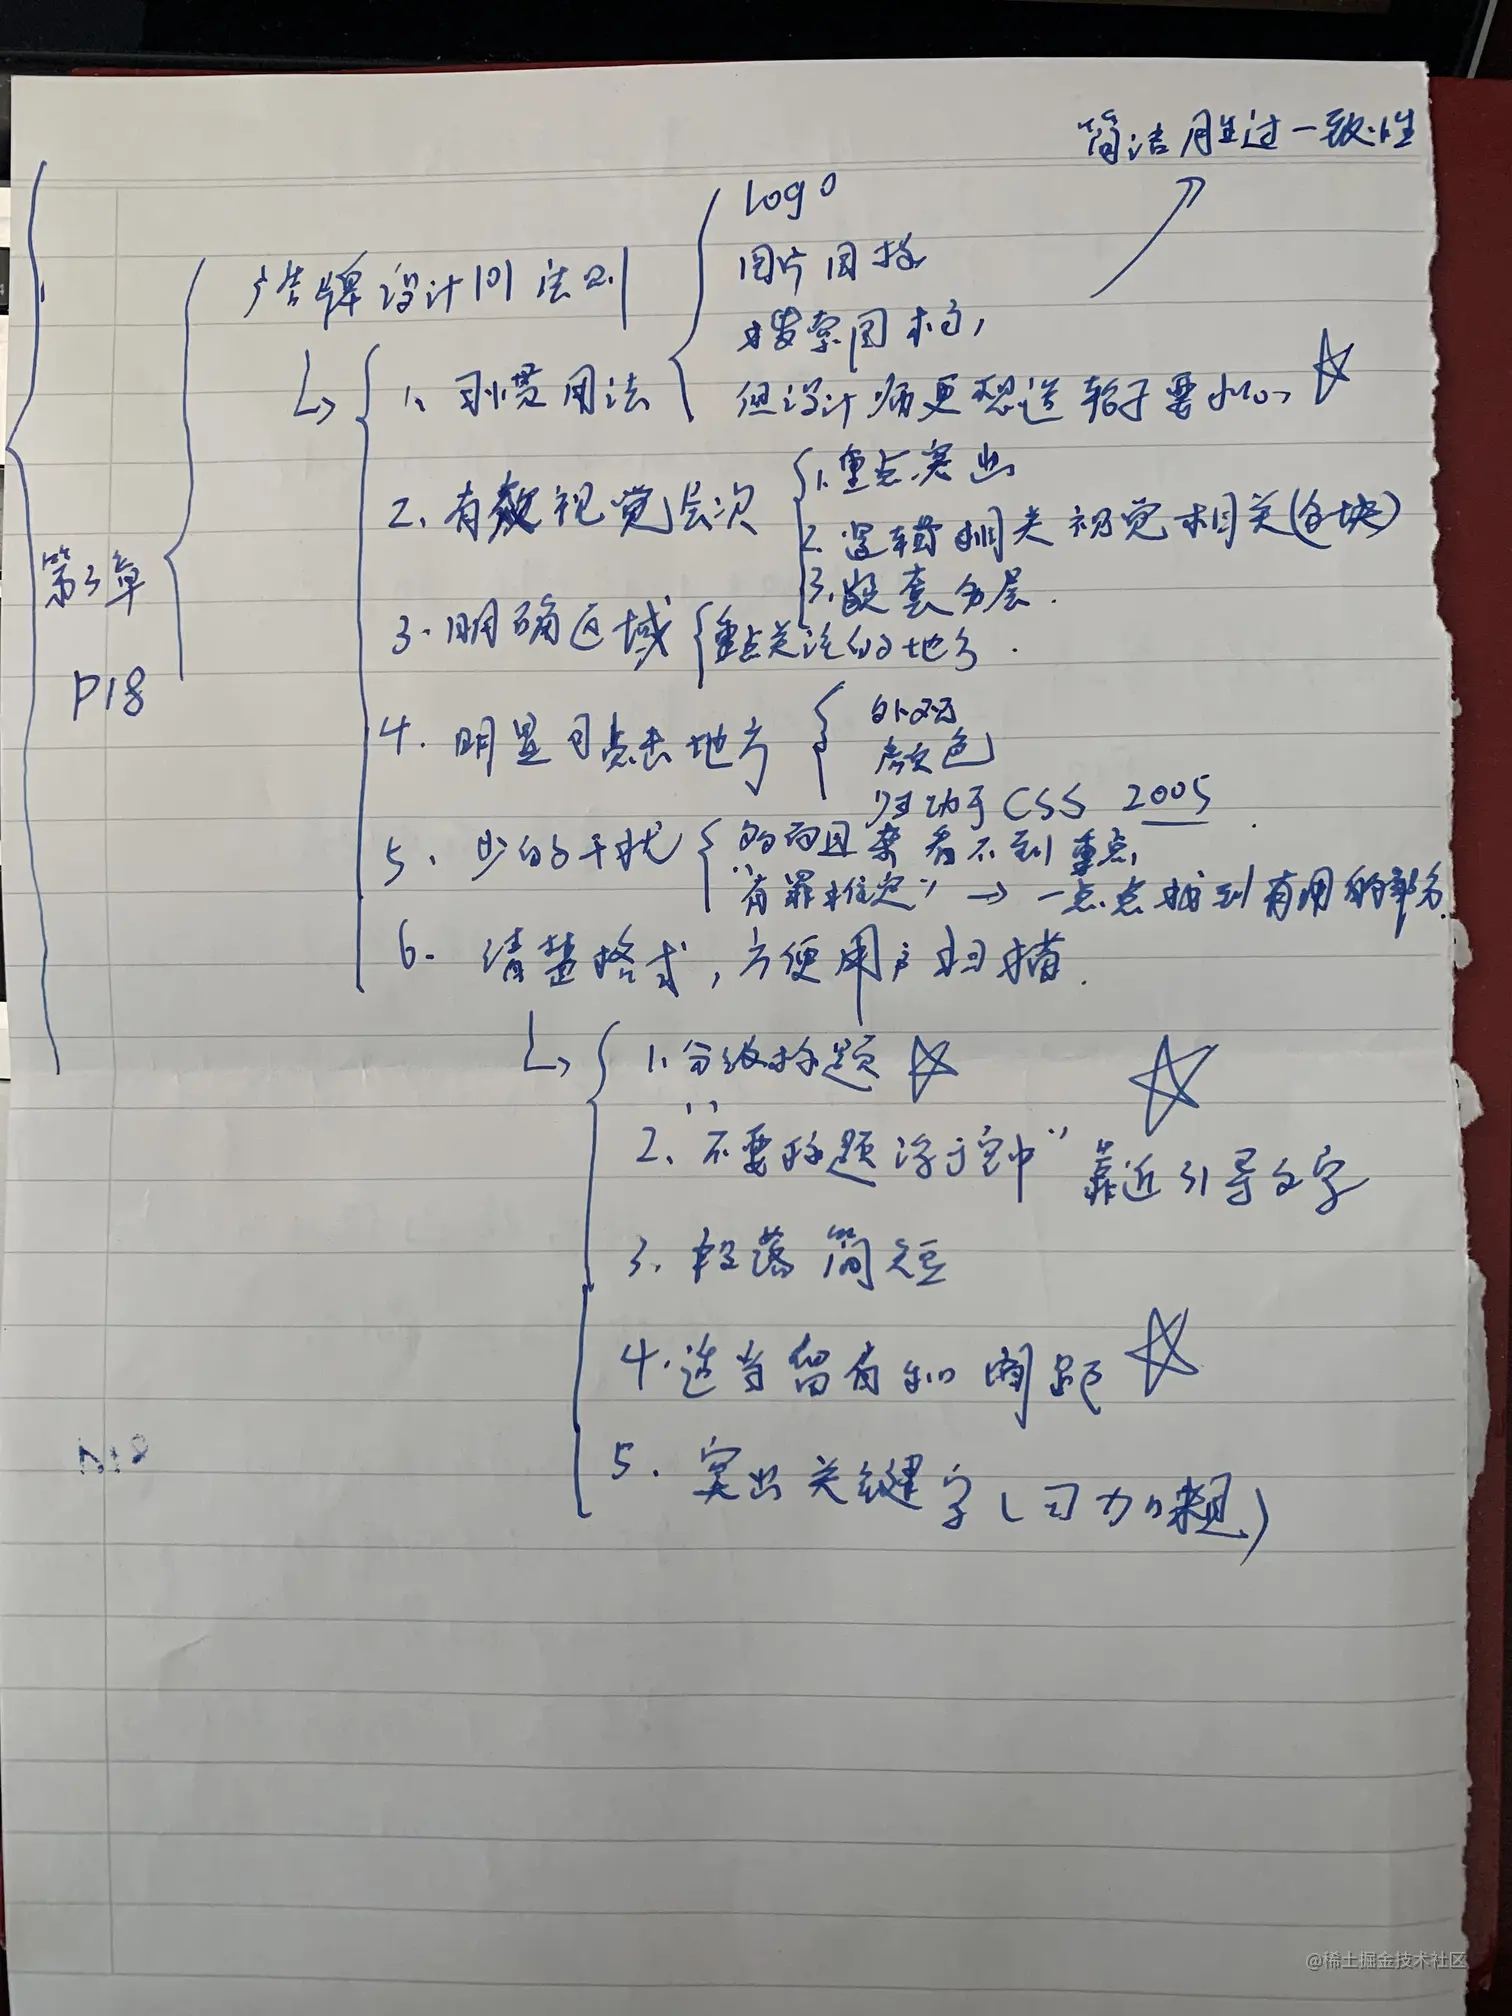 简洁胜过一致性
logo
图片图标
广告牌设计101法则
搜索图标,
1、习惯用法
但设计师更想造轮子要小心
1.重点突出
2、有效视觉层次
2.逻辑相关视觉相关(分块)
第3章
3.嵌套分层.
3.明确区域
重点关注的地方.
P18
外观
4.明显可点击地方
颜色
归功于CSS 2005
5、少的干扰
看不到重点,
"有罪推定" → 一点点找到有用的部分.
6. 清楚格式,方便用户扫描.
1.分级标题
2、"不要标题浮于空中" 靠近引导文字
3、段落简短
4.适当留有 间距
5.突出关键字(可加粗)
@稀土掘金技术社区